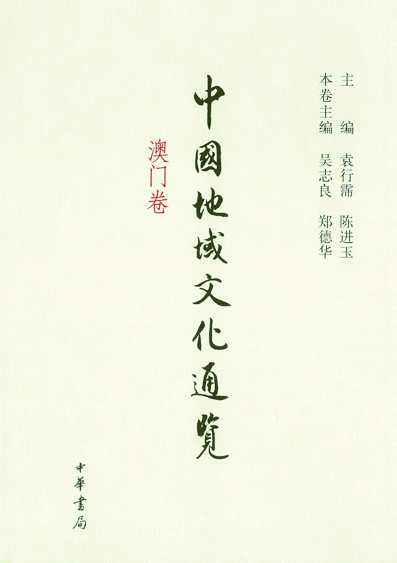 主 编 袁行霈 陈进玉
本卷主编 吴志良 郑德华
中國地域文化通覽
澳门卷
中華書局